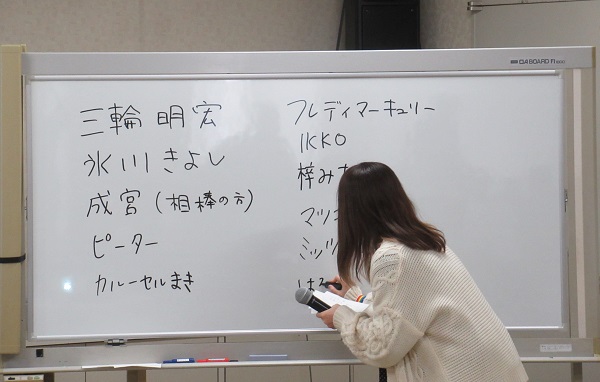 三輪明宏
氷川きよし
成宮(相棒の方)
ピーター
カルーセルまき
フレディマーキュリー
IKKO
梓み
マツ
ミッツ
はる